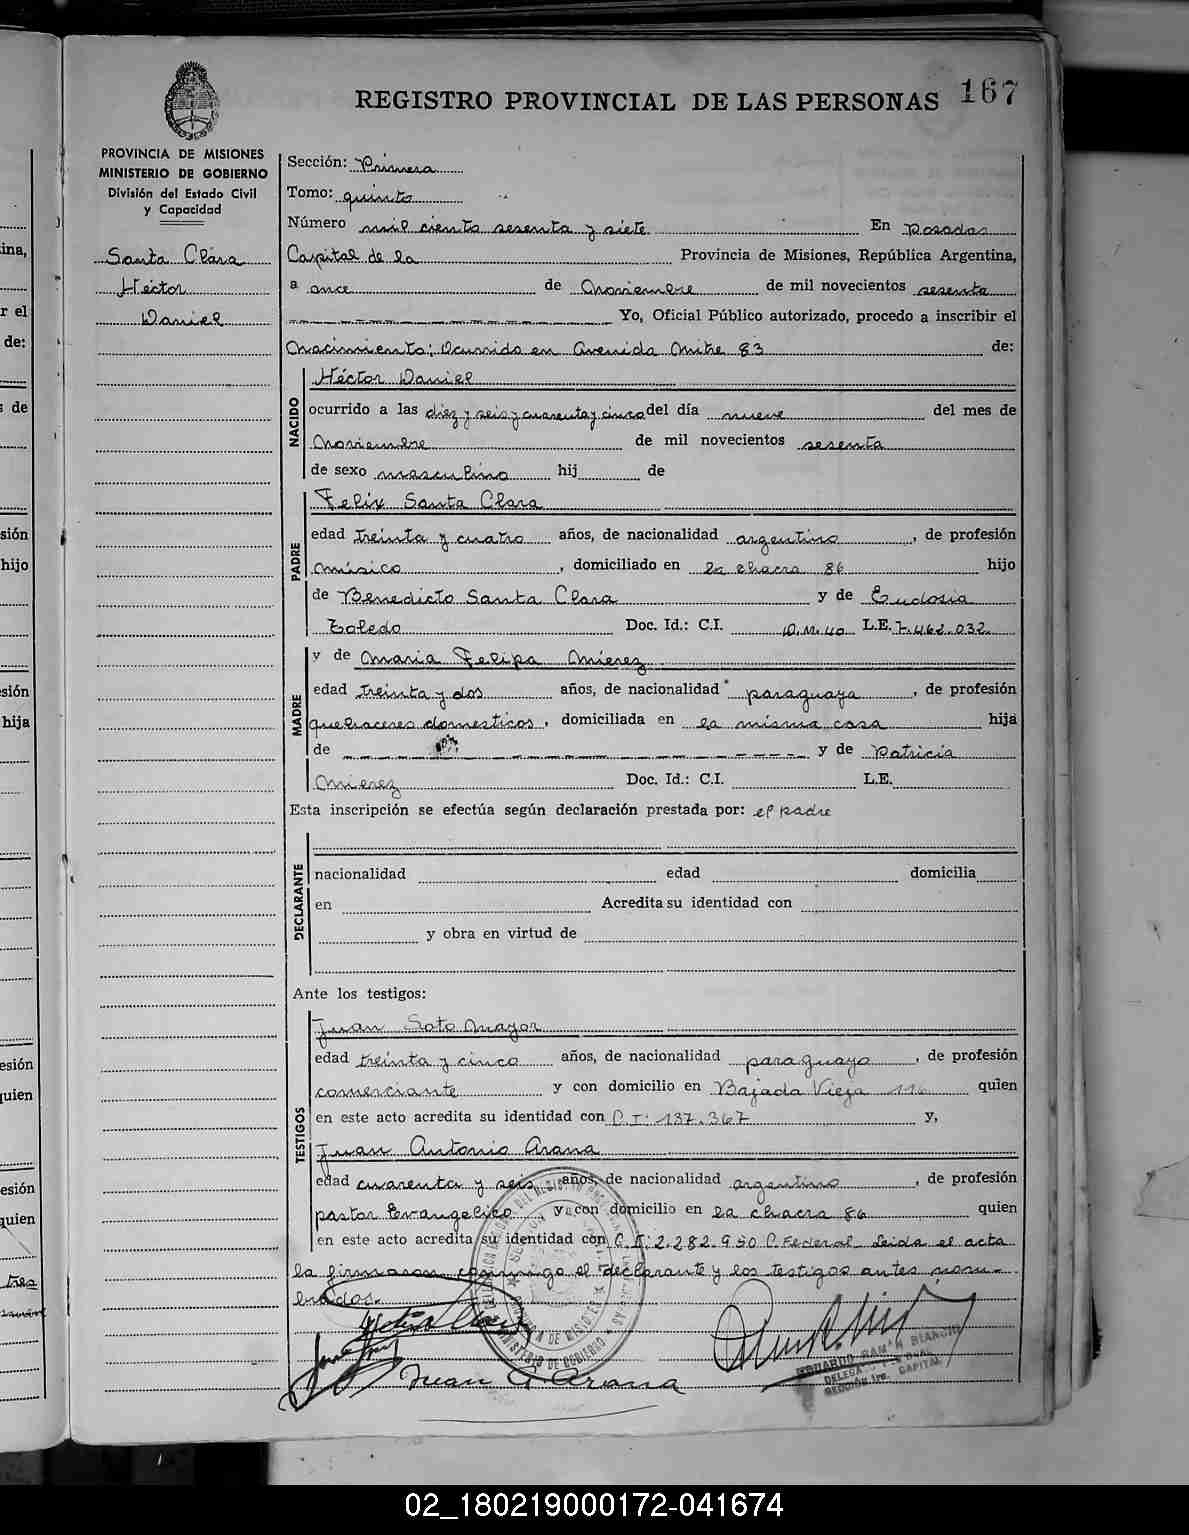 REGISTRO PROVINCIAL DE LAS PERSONAS 167
PROVINCIA DE MISIONES
MINISTERIO DE GOBIERNO
División del Estado Civil
y Capacidad
Santa Clara
Héctor
Daniel
Sección: Primera
Tomo: quinto
Número mil ciento sesenta y siete En Posadas
Capital de la Provincia de Misiones, República Argentina,
a once de Noviembre de mil novecientos sesenta
Yo, Oficial Público autorizado, procedo a inscribir el
Nacimiento: Ocurrido en Avenida Mitre 83 de:
NACIDO
Héctor Daniel
ocurrido a las diez y seis y cuarenta y cinco del día nueve del mes de
Noviembre de mil novecientos sesenta
de sexo masculino hij de
PADRE
Felix Santa Clara
edad treinta y cuatro años, de nacionalidad argentino, de profesión
músico, domiciliado en la chacra 86 hijo
de Benedicto Santa Clara y de Eudosia
Toledo Doc. Id.: C.I. D.M.40 L.E. 7.462.032.
MADRE
y de Maria Felipa Mierez
edad treinta y dos años, de nacionalidad paraguaya, de profesión
quehaceres domesticos, domiciliada en la misma casa hija
de y de Patricia
Mierez Doc. Id.: C.I. L.E.
Esta inscripción se efectúa según declaración prestada por: el padre
DECLARANTE
nacionalidad edad domicilia
en Acredita su identidad con
y obra en virtud de
Ante los testigos:
TESTIGOS
Juan Soto Mayor
edad treinta y cinco años, de nacionalidad paraguayo, de profesión
comerciante y con domicilio en Bajada Vieja 116 quien
en este acto acredita su identidad con C.I: 137.367 y,
Juan Antonio Arana
edad cuarenta y seis años, de nacionalidad argentino, de profesión
pastor Evangelico y con domicilio en la chacra 86 quien
en este acto acredita su identidad con C.I: 2.282.950 C. Federal. Leida el acta
la firmaron conmigo el declarante y los testigos antes nom-
brados.
Juan A Arana
EDUARDO RAMÓN BIANCHI
SECCIÓN 1ra. CAPITAL
02_180219000172-041674